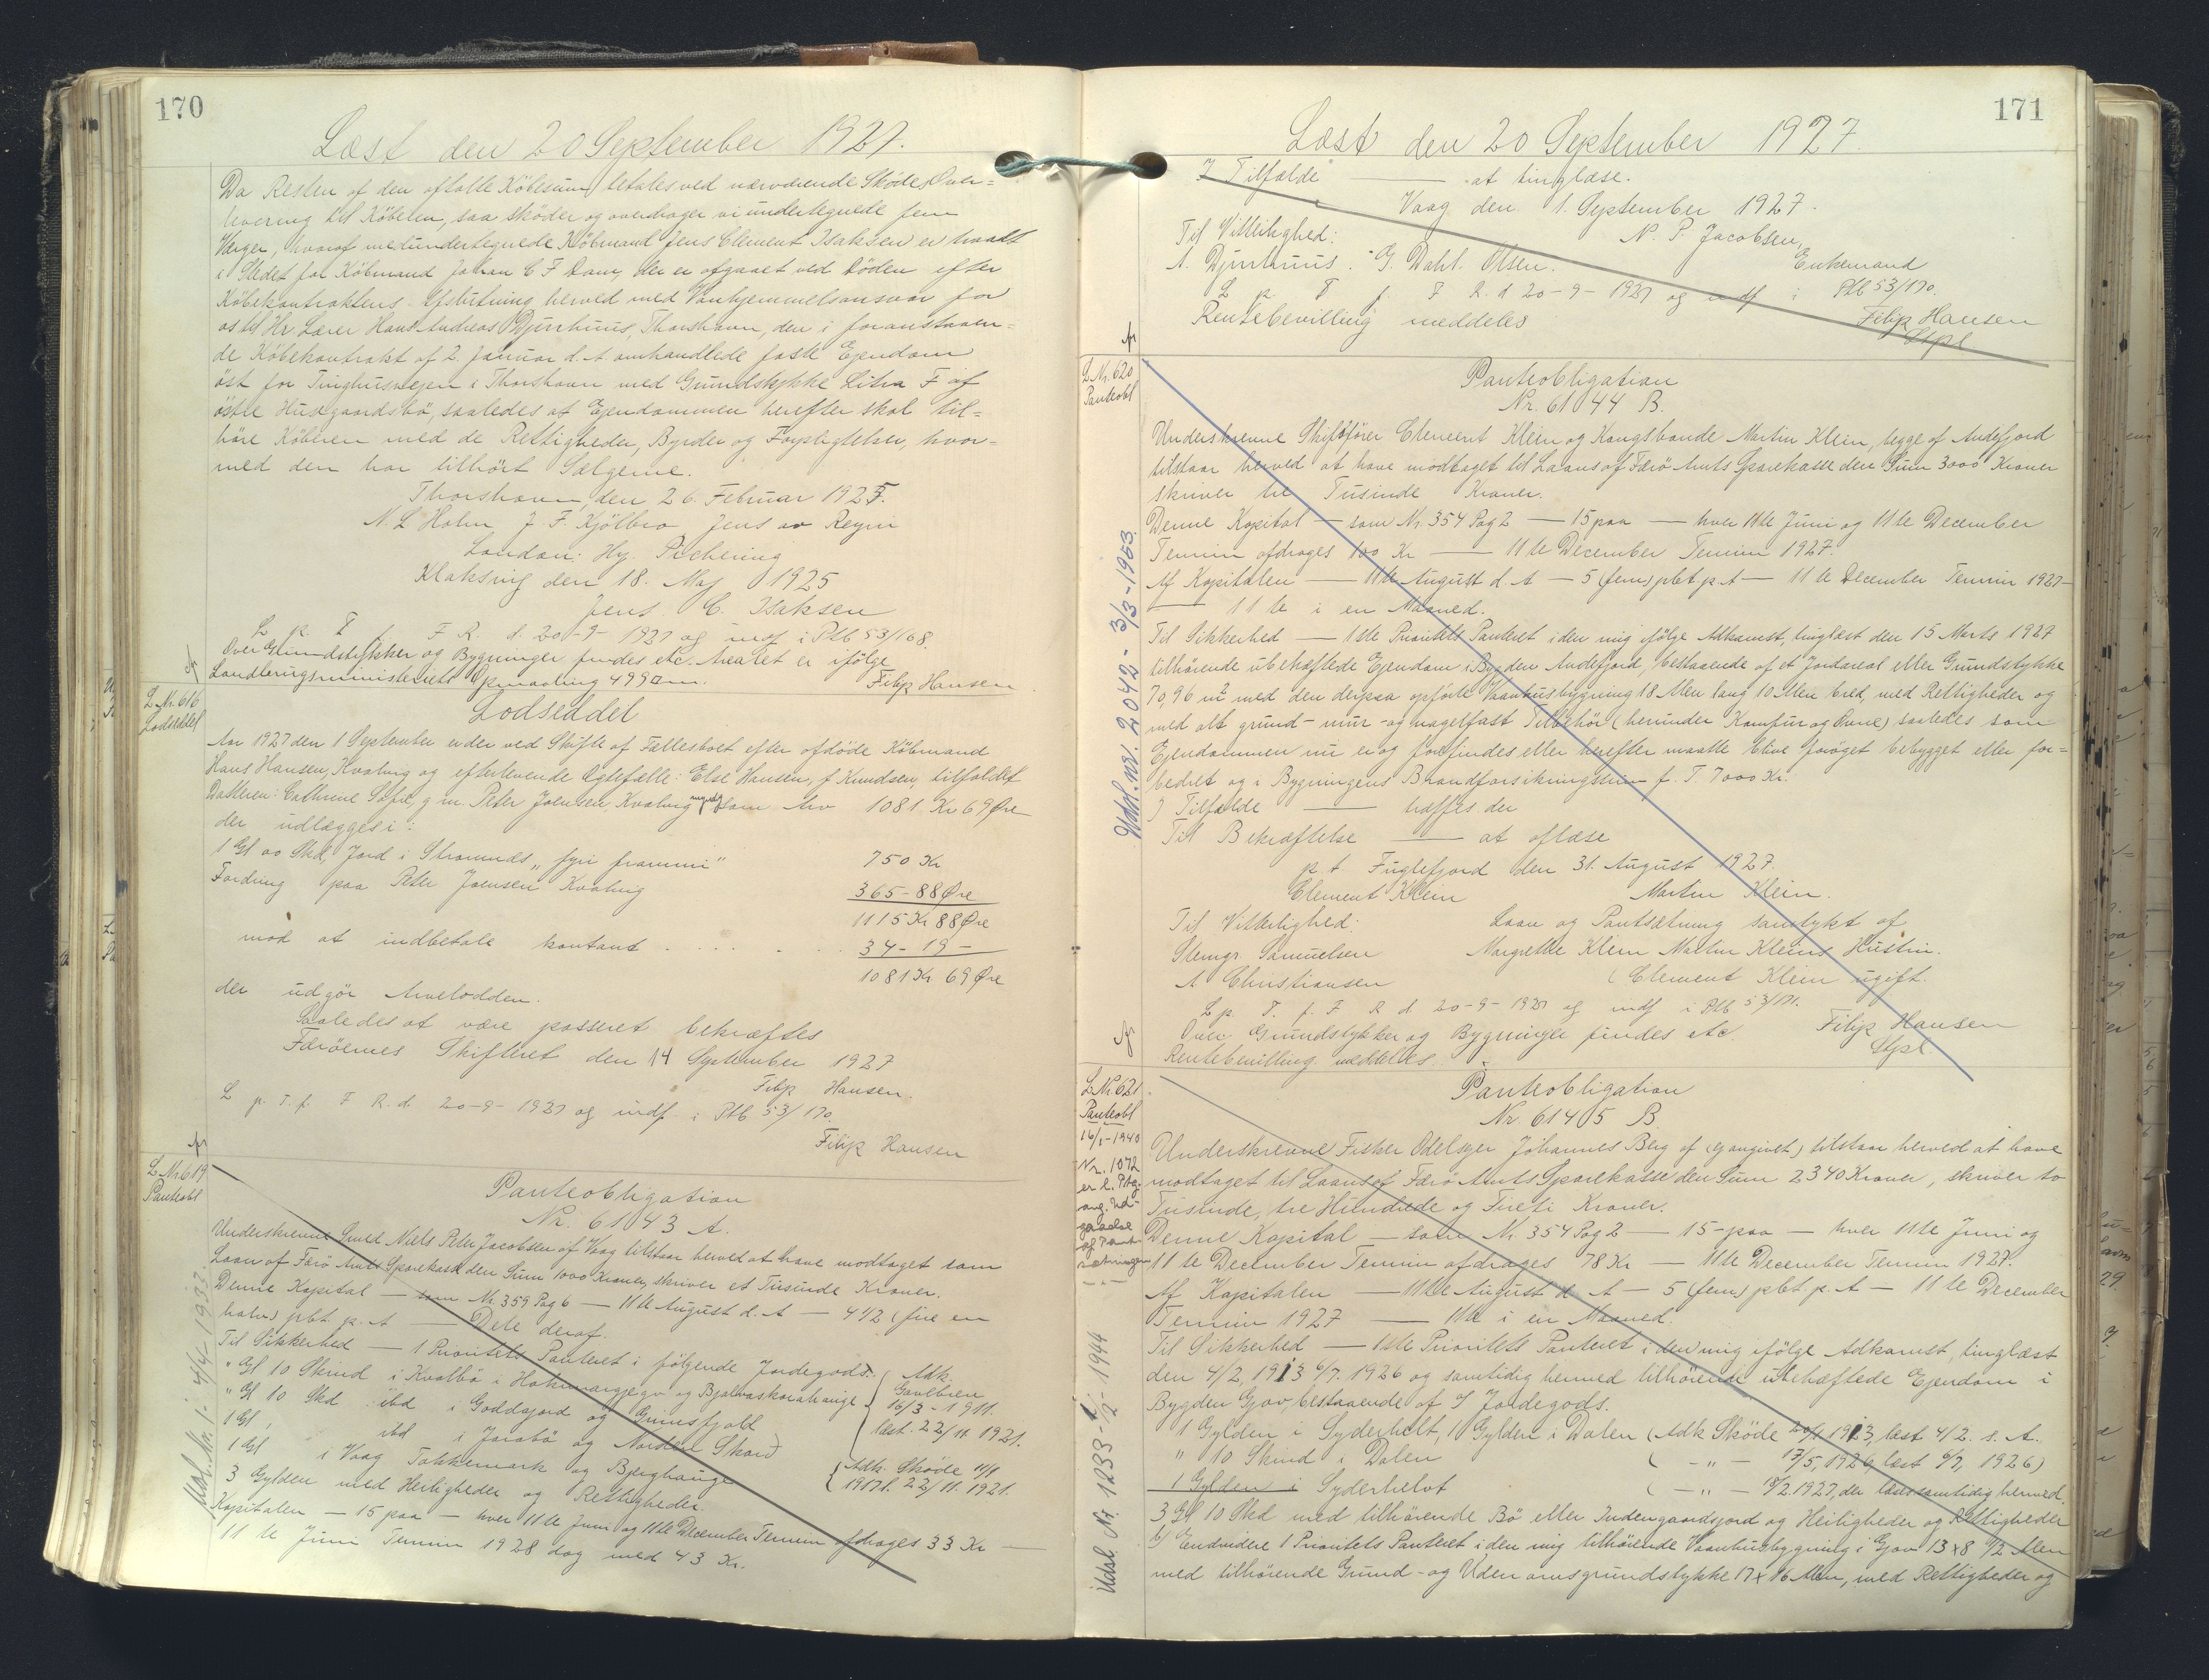 170
Læst den 20 September 1927.
Da Resten af den aftalte Köbesum betales ved nærværende Sködes Over=
levering til Köberen, saa sköder og overdrager vi undertegnede fem
Værger, hvoraf medundertegnede Köbmand Jens Clement Isaksen er traadt
i Stedet for Köbmand Johan C F Dam, der er afgaaet ved Döden efter
Köbekontraktens Afslutning herved med Vanhjemmelsansvar for
os til Hr Lærer Hans Andreas Djurhuus, Thorshavn, den i foranstaaen=
de Köbekontrakt af 2. Januar d. A omhandlede faste Ejendom
öst for Tinghusvejen i Thorshavn med Grundstykke Litra F af
östre Husgaardsbö, saaledes at Ejendommen herefter skal til=
höre Köberen med de Rettigheder, Byrder og Forpligtelser, hvor=
med den har tilhört Sælgerne.
Thorshavn, den 26. Februar 1925.
N. L Holm J. F. Kjölbro Jens av Reyni
London: Hy. Pickering
Klaksvig den 18. Maj 1925
Jens C. Isaksen
L p. T f. F R. d. 20-9-1927 og indf i Ptb 53/168.
Over Grundstykker og Bygninger findes etc. Arealet er ifölge
Landbrugsministeriets Opmaaling 499 □ m.
Filip Hansen
L. Nr. 616
Lodseddel
Lodseddel
Aar 1927 den 1 September er der ved Skifte af Fællesboet efter afdöde Köbmand
Hans Hansen, Kvalvig og efterlevende Ægtefælle: Else Hansen, f. Knudsen, tilfaldet
Datteren: Cathrine Sofie, g. m. Peter Joensen Kvalvig som Arv 1081. Kr 69 Øre
der udlægges i:
1 Gl 00 Skd, Jord i Strømnæs „fyri frammi" 750 Kr
Fordring paa Peter Joensen Kvalvig 365-88 Øre
1115 Kr 88 Øre
mod at indbetale kontant . . . . 34-19-
1081 Kr 69 Øre
der udgör Arvelodden.
Saaledes at være passeret bekræftes
Færöernes Skifteret den 14 September 1927
Filip Hansen.
L p. T. f. F R. d. 20-9-1927 og indf. i Ptb 53/170
Filip Hansen
L Nr 619
Panteobl
Panteobligation
Nr. 61043 A.
Underskrevne Smed Niels Peter Jacobsen af Vaag tilstaar herved at have modtaget som
Laan af Færö Amts Sparekasse den Sum 1000 Kroner, skriver et Tusinde Kroner.
Denne Kapital — som Nr. 359 Pag 6 — 11te August d. A — 4 1/2 (fire en
halv) pct. p. A — Dele deraf.
Til Sikkerhed — 1 Prioritets Panteret i fölgende Jordegods:
" Gl 10 Skind i Kvalbö i Hakunargjegv og Bjalvaskorahauge
" Gl 10 Skd ibd i Goddajord og Grimsfjald
1 Gl, ibd i Jorabö og Nordere Skard
1 Gl i Vaag Takkemark og Bjerghauge
Adk.
Gavebrev
16/3-1911.
læst. 22/11. 1921.
Adk. Sköde 11/9
1917 l. 22/11. 1921.
3 Gylden med Herligheder og Rettigheder.
Kapitalen — 15 paa — hver 11te Juni og 11te December Termin afdrages 33 Kr —
11te Juni Termin 1928 dog med 43 Kr.
Udsl. Nr. 1. 4/4-1933.
171
Læst den 20 September 1927.
I Tilfælde — at tinglæse.
Vaag den 1. September 1927.
Til Vitterlighed: N. P. Jacobsen,
A. Djurhuus. G. Dahl. Olsen. Enkemand
L p T f. F R. d 20-9-1927 og indf i Ptb 53/170.
Rentebevilling meddeles Filip Hansen
Stpl.
L Nr. 620
Panteobl
Panteobligation
Nr. 61044 B.
Underskrevne Skibsförer Clement Klein og Kongsbonde Martin Klein, begge af Andefjord
tilstaar herved at have modtaget til Laans af Færö Amts Sparekasse den Sum 3000 Kroner
skriver tre Tusinde Kroner.
Denne Kapital — som Nr. 354 Pag 2 — 15 paa — hver 11te Juni og 11te December
Termin afdrages 100 Kr — 11te December Termin 1927.
Af Kapitalen — 11te August d. A — 5 (fem) pct. p. A — 11te December Termin 1927 —
— 11te i en Maaned.
Til Sikkerhed — 1ste Prioritets Panteret i den mig ifölge Adkomst, tinglæst den 15 Marts 1927
tilhörende ubehæftede Ejendom i Bygden Andefjord, bestaaende af et Jordareal eller Grundstykke
70,96 m² med den derpaa opförte Vaanhusbygning 18 Alen lang 10 Alen bred, med Rettigheder og
med alt grund- mur- og nagelfast Tilbehör (herunder Komfur og Ovne) saaledes som
Ejendommen nu er og forefindes eller herefter maatte blive foröget bebygget eller for=
bedret og i Bygningens Brandforsikringssum p. T. 7000 Kr.
I Tilfælde — træffes der
Til Bekræftelse — at aflæse
p t Fuglefjord den 31. August 1927.
Clement Klein Martin Klein.
Til Vitterlighed: Laan og Pantsætning samtykt af
Stemgr. Samuelsen Margrethe Klein Martin Kleins Hustru.
A Christiansen (Clement Klein ugift.
L p. T. f. F R d. 20-9-1927 og indf i Ptb 53/171.
Over Grundstykker og Bygninger findes etc. Filip Hansen
Rentebevilling meddeles. Stpl.
Udsl. nr. 2042 - 3/3-1953.
L Nr. 621
Panteobl
16/1-1940
Nr. 1072
er l. Ptbg.
ang. Ud-
gaaelse
af Pant-
sætningen
Panteobligation
Nr. 61405 B.
Underskrevne Fisker Odelsejer Jóhannes Berg af (Gjov givet) tilstaar herved at have
modtaget til Laans af Færö Amts Sparekasse den Sum 2340 Kroner, skriver to
Tusinde, tre Hundrede og Fireti Kroner.
Denne Kapital — som Nr 354 Pag 2 — 15-paa — hver 11te Juni og
11te December Termin afdrages 78 Kr — 11te December Termin 1927.
Af Kapitalen — 11te August d. A — 5 (fem) pct. p. A — 11te December
Termin 1927 — 11te i en Maaned.
Til Sikkerhed — 1ste Prioritets Panteret i den mig ifölge Adkomst, tinglæst
den 4/2, 1913 6/7. 1926 og samtidig hermed tilhörende ubehæftede Ejendom i
Bygden Gjov, bestaaende af Jordegods.
1 Gylden i Syderhelt, 1 Gylden i Dalen (Adk Sköde 20/1 1913, læst 4/2. s. A.
" 10 Skind i Dalen ( — " — 17/5, 1926, læst 6/7, 1926)
1 Gylden i Syderhelvt ( — " — 18/2. 1927, der læses samtidig hermed.
3 Gl 10 Skd med tilhörende Bö eller Indengaardsjord og Herligheder og Rettigheder
b/ Endvidere 1 Prioritets Panteret i den mig tilhörende Vaanhusbygning i Gjov 13 x 8 1/2 Alen
med tilhörende Grund- og Udenomsgrundstykke 17 x 16 Alen, med Rettigheder og
Udsl. Nr 1233 - 1/2-1944